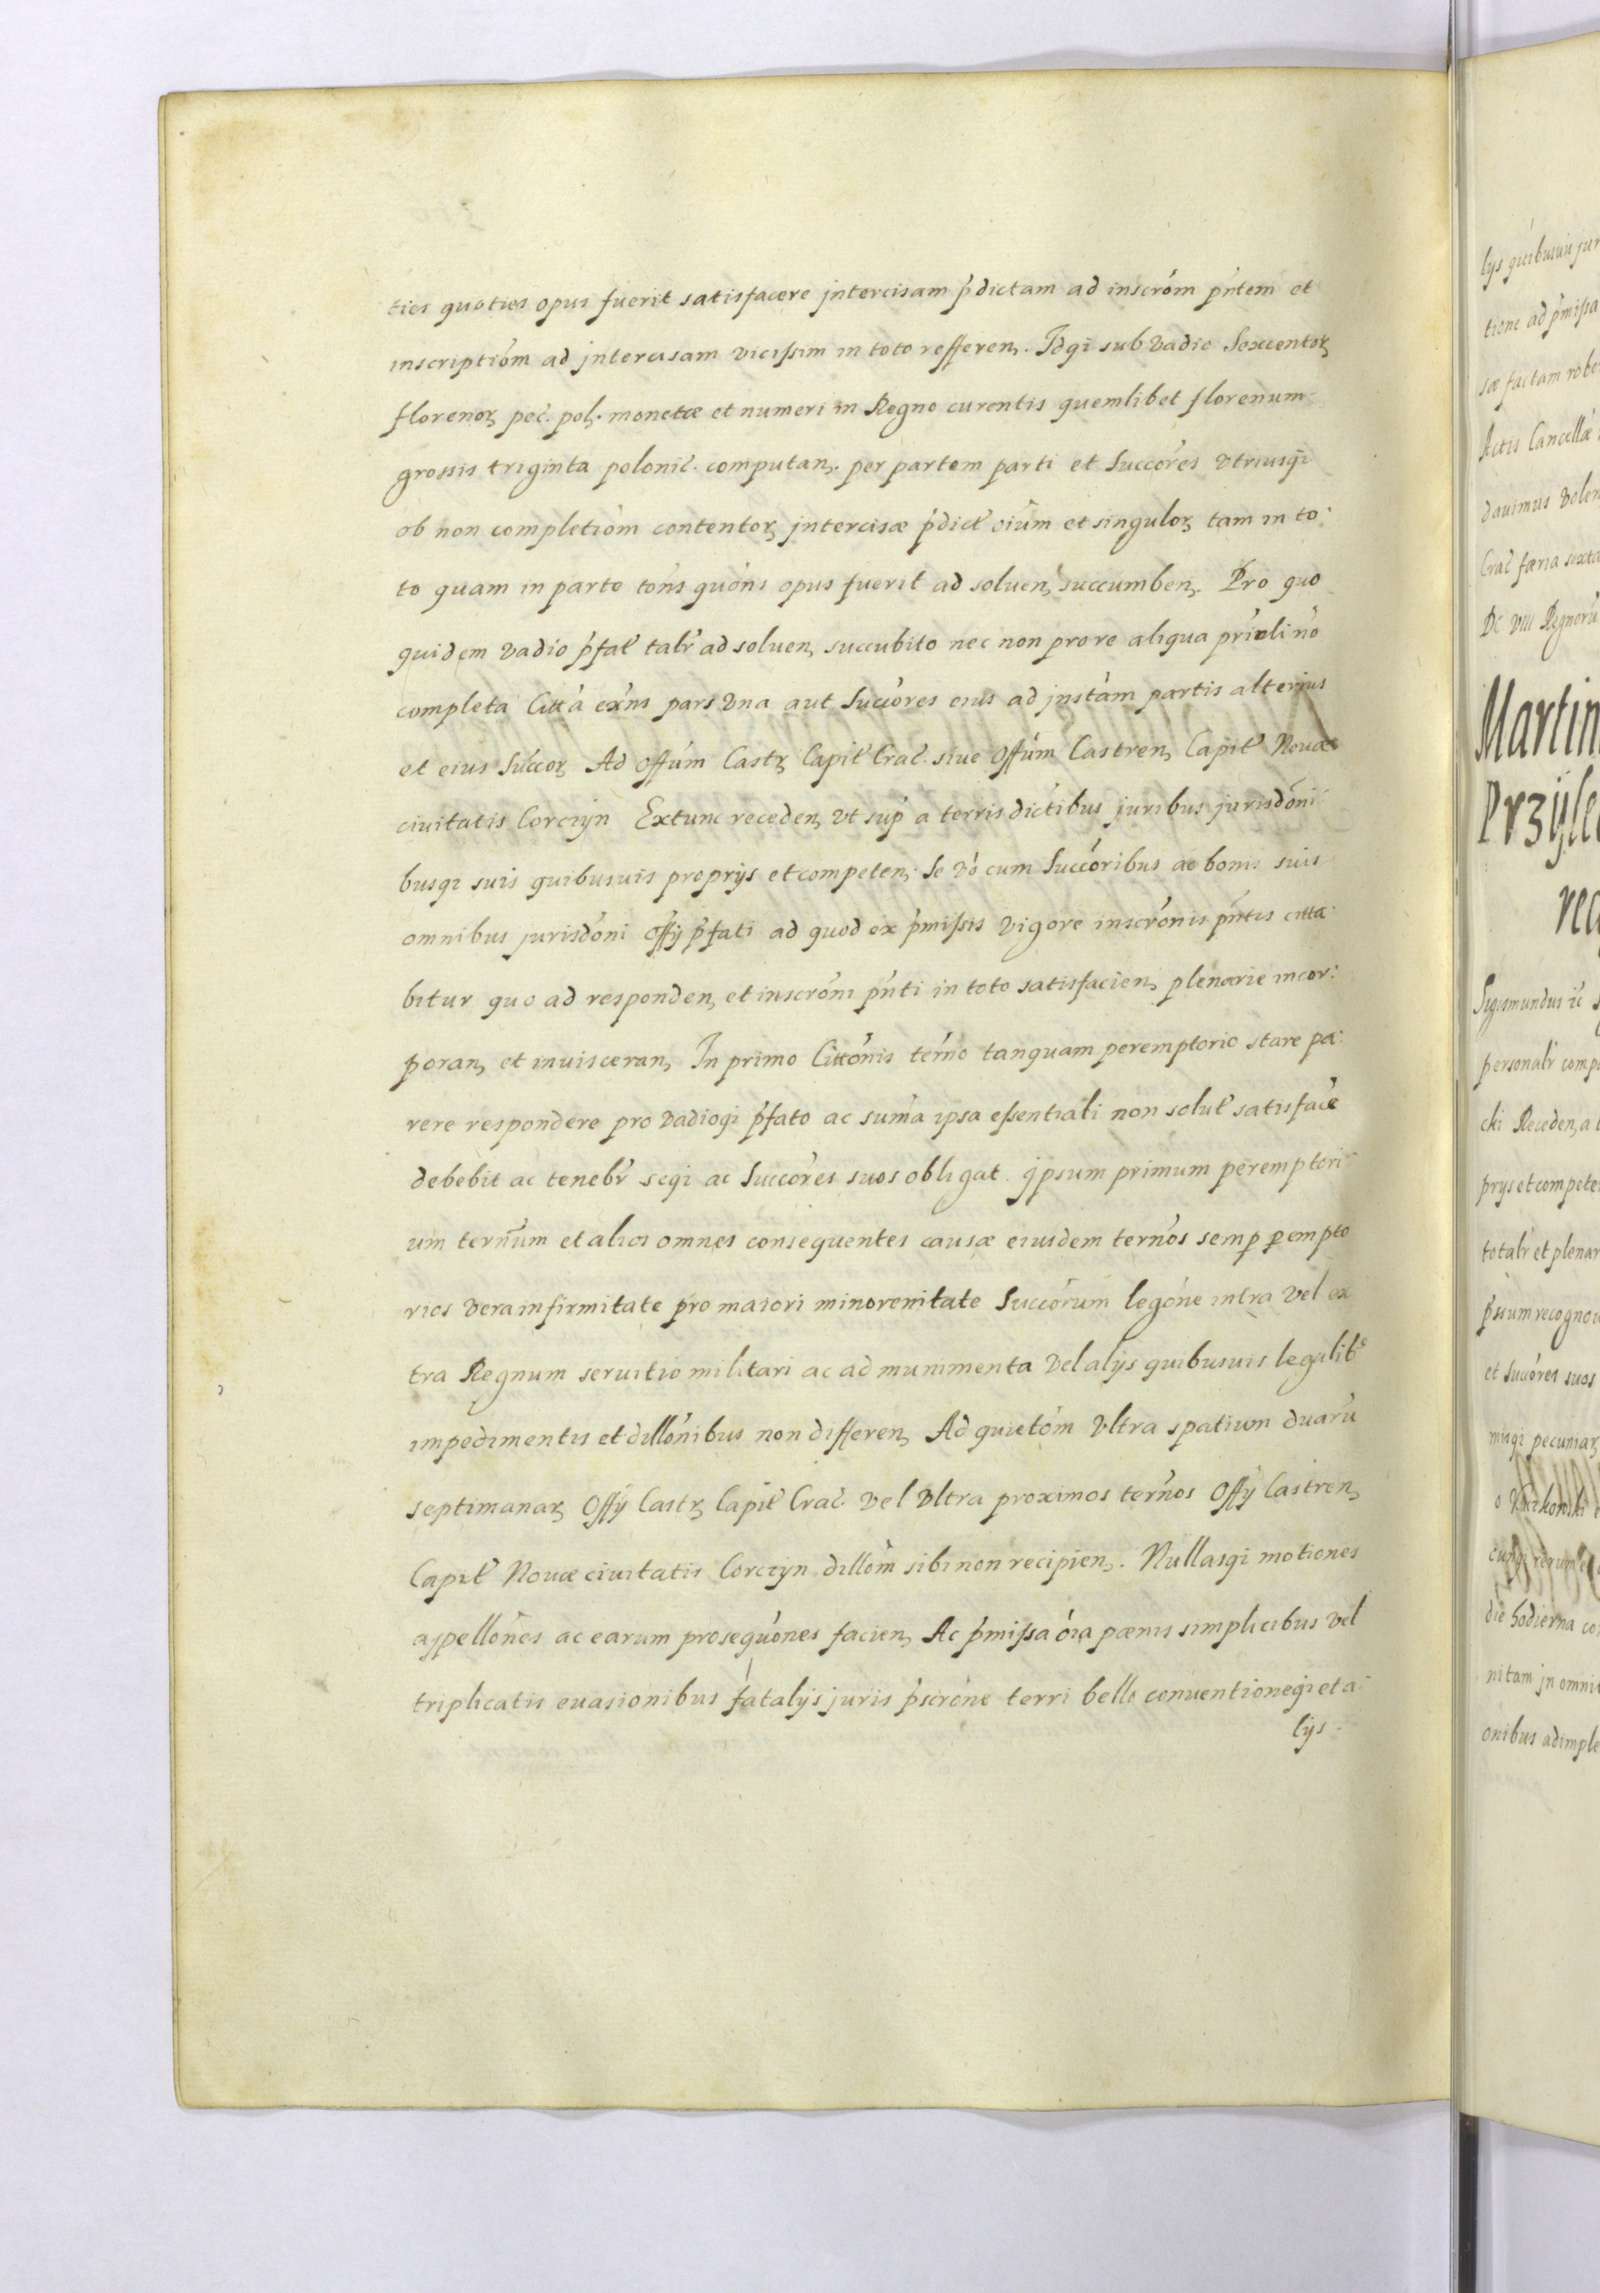 ties quoties opus fuerit satisfacere jntercisam p̃dictam ad inscrõm pñtem et
inscriptiõm ad jntercisam vicissim in toto refferen. Idqȝ sub vadio Sexcentoꝝ
florenoꝝ pec̃. pol. monetæ et numeri in Regno curentis quemlibet florenum
grossis triginta polonic̃. computan. per partem parti et Succores vtriusqȝ
ob non completiõm contentoꝝ jntercisæ p̃dict oium et singuloꝝ tam in to:
to quam in parte tõns quõns opus fuerit ad soluen, succumben. Pro quo
quidem vadio p̃fat talr̃ ad soluen, succubito nec non pro re aliqua prĩncli nõ
completa Citta exñs pars vna aut Succores eius ad jnstãm partis alterius
et eius Succoꝝ Ad Offũm Castꝝ Capit Crac̃. siue Offũm Castren, Capit Nouæ
ciuitatis Corczyn Extunc receden, vt sup̃ a terris dictibus juribus jurisdõni
busqȝ suis quibusuis proprijs et competen, Se võ cum Succoribus ac bonis suis
omnibus jurisdõni Offy p̃fati ad quod ex p̃missis vigore inscrõnis pñtis citta:
bitur quo ad responden, et inscrõni pñti in toto satisfacien, plenarie incor:
poran, et inuisceran, In primo Cittõnis terño tanquam peremptorio stare pa:
rere respondere pro vadioqȝ p̃fato ac suma ipsa essentiali non solut satisface
debebit ac tenebr̃ seqȝ ac Succores suos obligat jpsum primum peremptori:
um terñum et alios omnes consequentes causæ eiusdem terños semp pempto
rios vera infirmitate pro maiori minorenitate Succorum legõne intra vel ex
tra Regnum seruitio militari ac ad munimenta vel alijs quibusuis legalib9
impedimentis et dillõnibus non differen, Ad quietõm vltra spatium duarũ
septimanaꝝ Offy Castꝝ Capit Crac̃. vel vltra proximos terños Offy Castren,
Capit Nouæ ciuitatis Corczyn dillõm sibi non recipien. Nullasqȝ motiones
appellõnes ac earum prosequõnes facien, Ac p̃missa õia pænis simplicibus vel
triplicatis euasionibus fatalijs juris p̃scrõne terri belle conuentioneqȝ et a:
lijs
lijs quibusuis jur
tione ad p̃missa
sæ factam robo
Actis Cancellæ
dauimus volen
Crac̃ feria sexta
Dc VIII Regnorũ
Martin
Przÿłe
Sigismundus
personalr̃ comp
cki Receden, a
prijs et compete
totalr̃ et plenar
p̃sium recogno
et Succores suos
misqȝ pecuniaꝝ
die hodierna co
nitam jn omni
onibus adimple